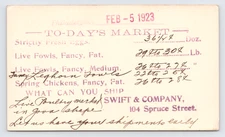 FEB -5 1923
TO-DAY'S MARKET
Strictly Fresh Eggs 36½¢ Doz.
Live Fowls, Fancy, Fat. 29 to 30¢ Lb.
Live Fowls, Fancy, Medium. 26 to 27¢
Fancy Leghorn Fowls
Spring Chickens, Fancy, Fat. 26 to 27¢
WHAT CAN YOU SHIP
Live Poultry market
in good shape
SWIFT & COMPANY,
104 Spruce Street.
Let us have your shipments early